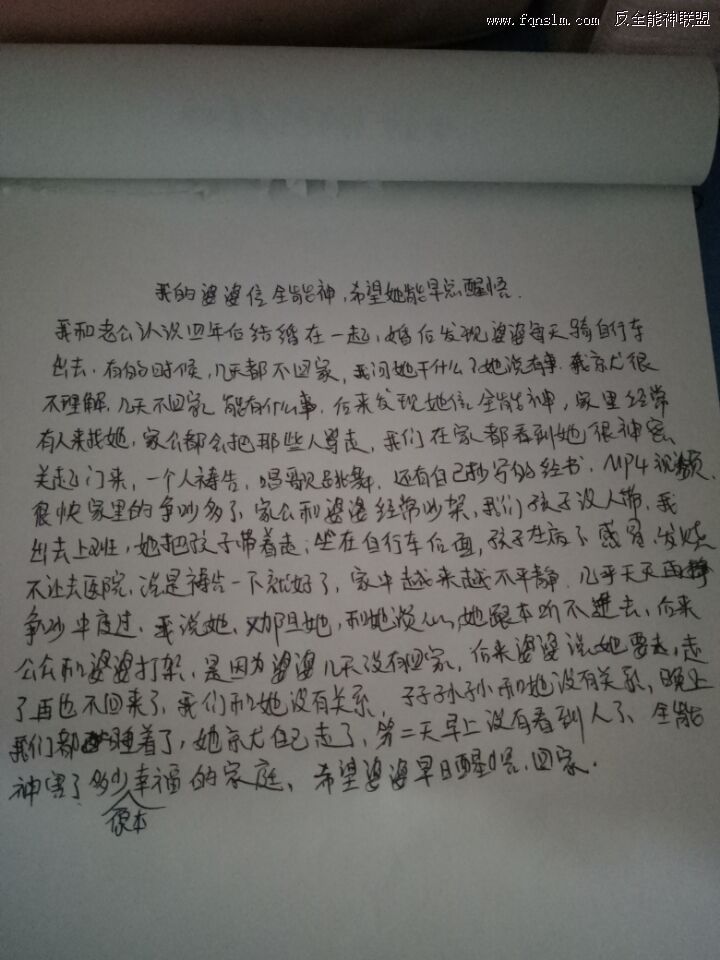 www.fqnslm.com 反全能神联盟
我的婆婆信全能神,希望她能早点醒悟.
我和老公认识四年后结婚在一起,婚后发现婆婆每天骑自行车
出去.有的时候,几天都不回家,我问她干什么了她说有事.我就很
不理解,几天不回家能有什么事,后来发现她信全能神,家里经常
有人来找她,家公都会把那些人骂走,我们在家都看到她很神密、
关起门来,一个人祷告,唱歌跳舞,还有自己抄写的经书,MP4视频.
很快家里的争吵多了,家公和婆婆经常吵架,我们孩子没人带,我
出去上班,她把孩子带着走;坐在自行车后面,孩子生病了感冒,发烧
不让去医院,说是祷告一下就好了,家中越来越不平静.几乎天天再
争吵中度过.我说她,劝阻她,和她谈心,她跟本听不进去,后来
公公和婆婆打架,是因为婆婆几天没有回家,后来婆婆说她要走,走
了再也不回来了,我们和她没有关系,子子孙孙和她没有关系,晚上
我们都睡着了,她就自己走了,第二天早上没有看到人了、全能
神害了多少原本幸福的家庭、希望婆婆早日醒悟.回家.